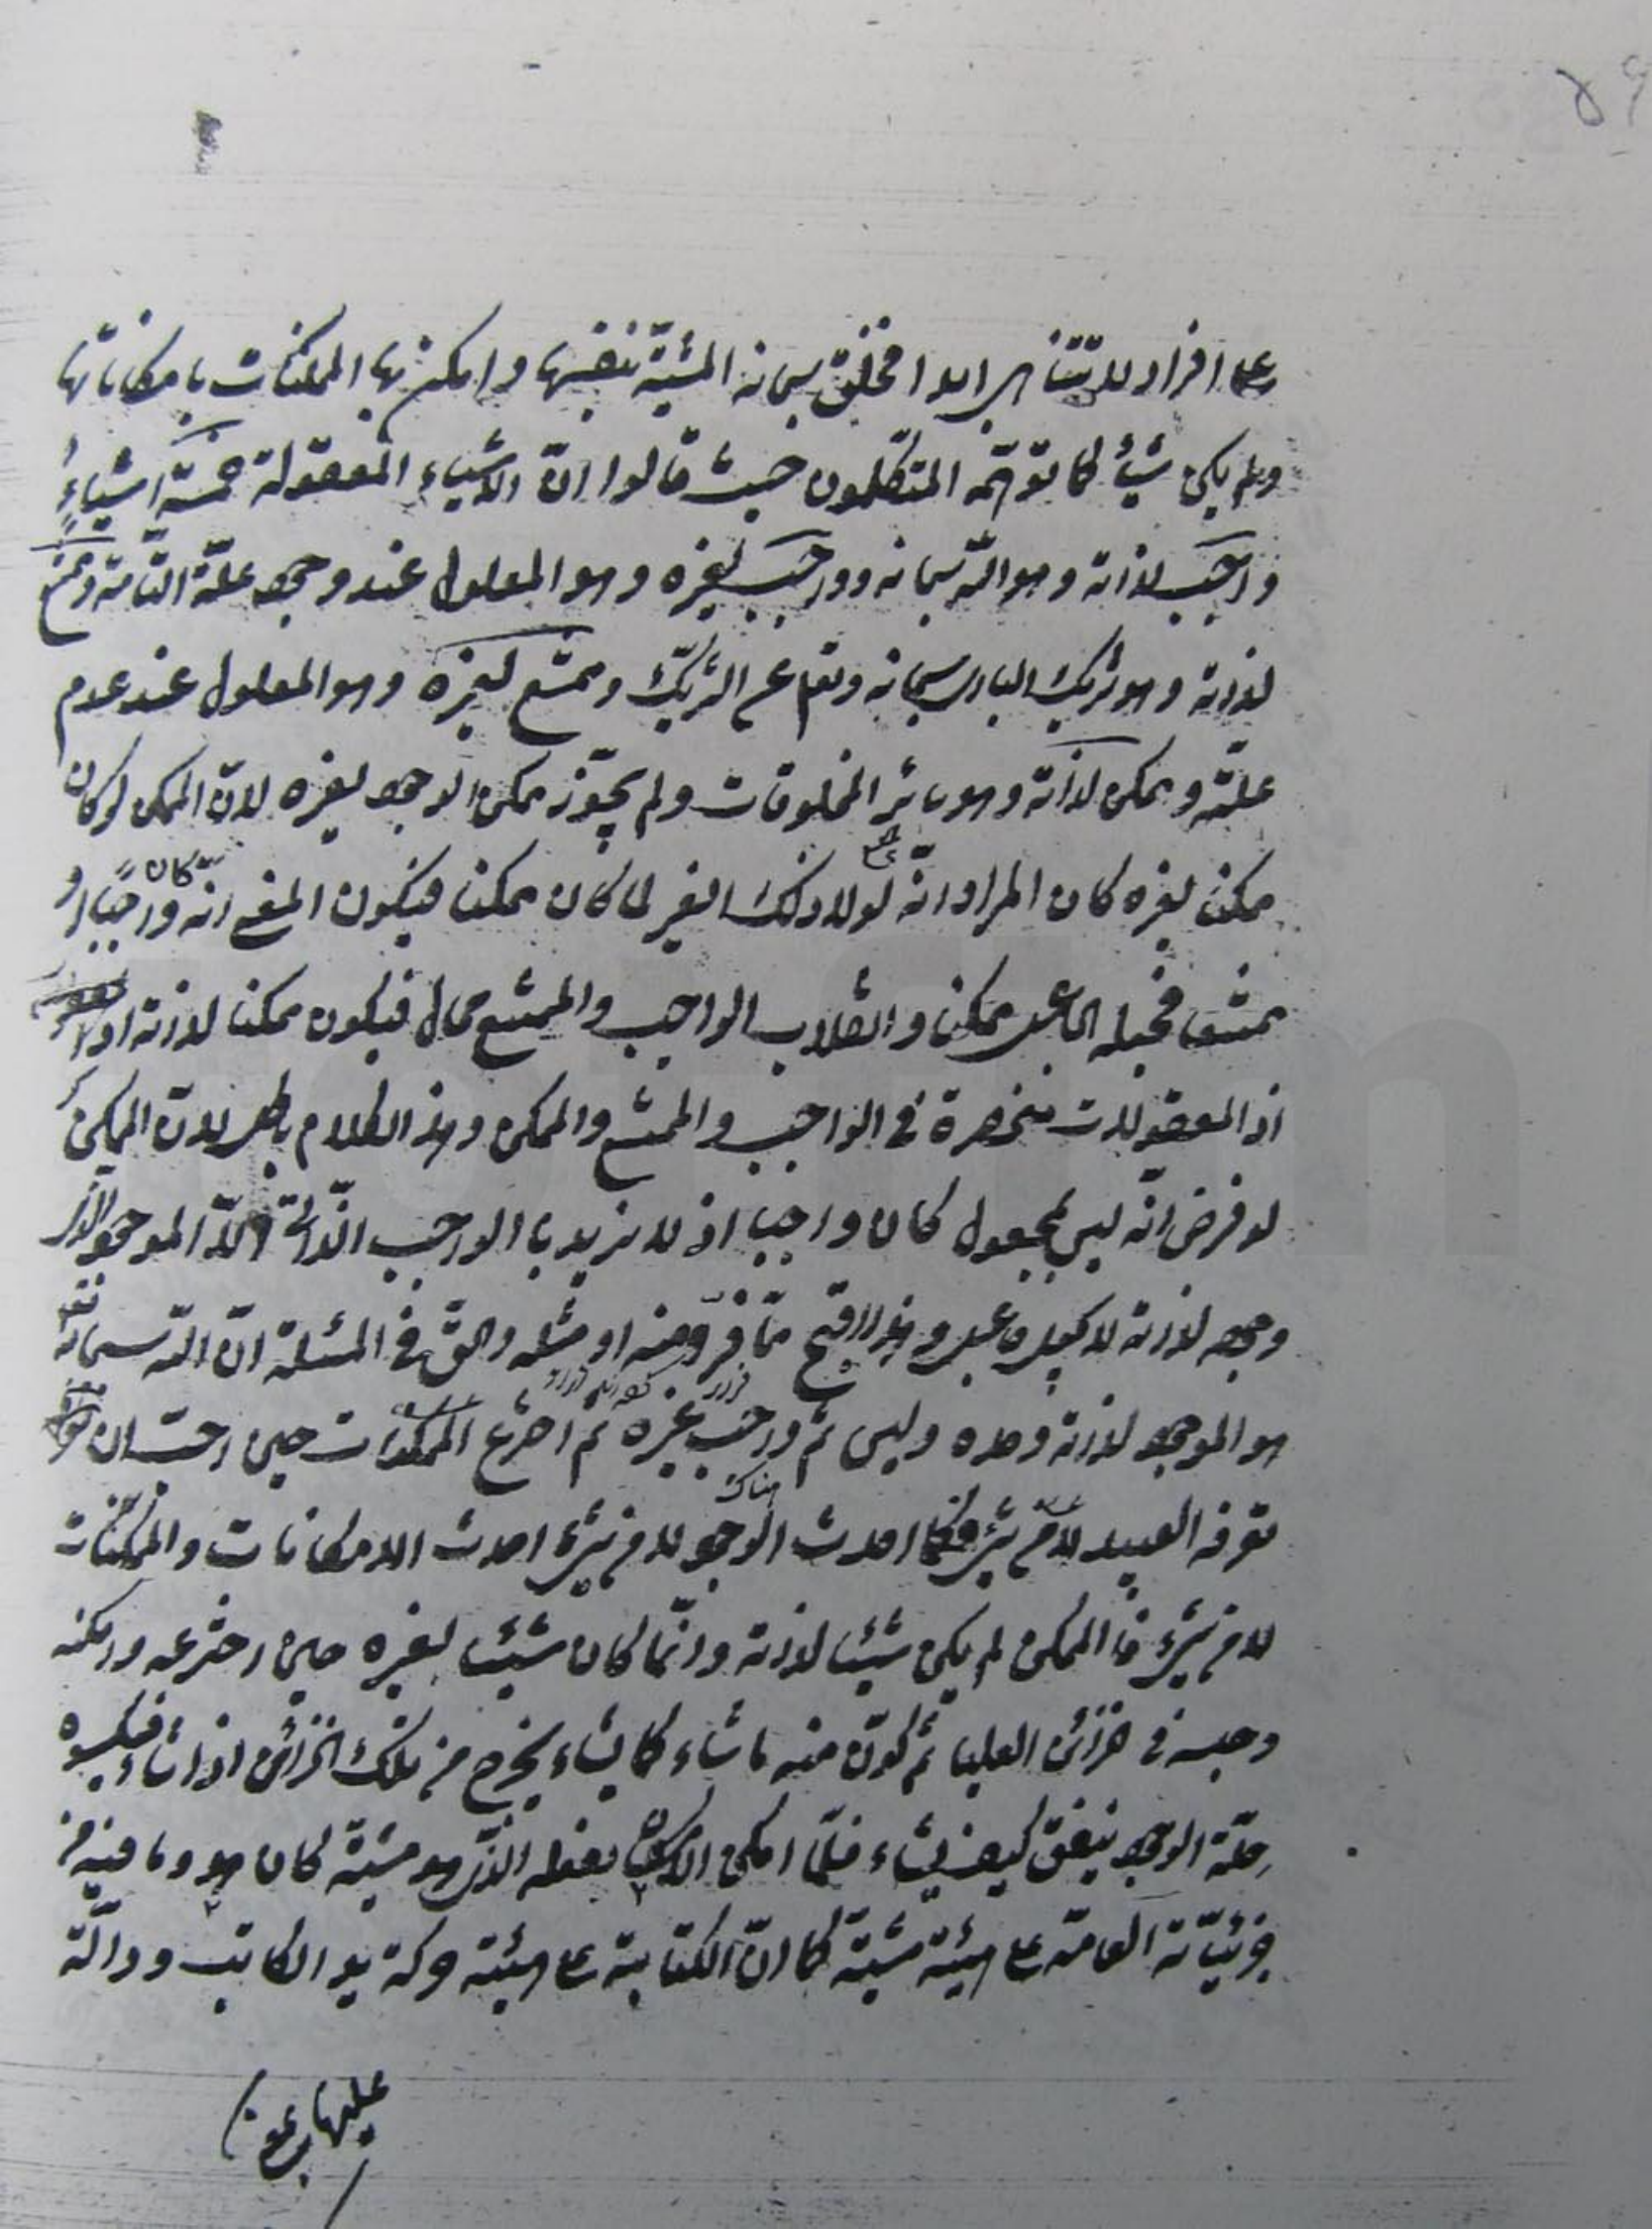 ٥٩
على افراد لا تتناهى ابدا فخلق سبحانه المشيّة بنفسها وامكن بها الممكنات بامكاناتها
ولم يكن شيئا كما توهّمه المتكلّمون حيث قالوا انّ الاشياء المعقولة خمسة اشياءٍ
واجب لذاته وهو اللّه سبحانه وواجب لغيره وهو المعلول عند وجود علّته التامّة وممتنع
لذاته وهو شريك الباري سبحانه وتعالى عن الشريك وممتنع لغيره وهو المعلول عند عدم
علّته وممكن لذاته وهو سائر المخلوقات ولم يجوّز ممكن الوجود لغيره لانّ الممكن لو كان
ممكن لغيره كان المراد انّه لولا ذلك الغير لما كان ممكنا فيكون المعنى انّه كان واجبًا او
ممتنعا فجعله الجاعل ممكنا وانقلاب الواجب والممتنع محال فيكون ممكنا لذاته
اذ المعقولات منحصرة في الواجب والممتنع والممكن وهذا الكلام باطل لانّ الممكن
لو فرض انّه ليس بمجعول كان واجبا اذ لا نريد بالواجب الذاتي الّا الموجود الذي
وجوده لذاته لا بجعل جاعل وهذا اقبح ممّا فرّ منه او مثله والحقّ في المسئلة انّ اللّه سبحانه
هو الموجود لذاته وحده وليس ثمّ واجب غيره ثم اخترع الممكنات حين احبّ ان
تعرفه العبيد لا من شيء فكما احدث الوجود هناك لا من شيء احدث الامكانات والممكنات
لا من شيء فالممكن لم يكن شيئا لذاته وانّما كان شيئا لغيره حين اخترعه وامكنه
وحبسه في خزائنه العليا ثم كوّن منه ما شاء كما يشاء يخرج من تلك الخزائن اذا شاء فيكسوه
حلّة الوجود ينفق كيف يشاء فلمّا امكن الامكان بفعله الذي هو مشيّته كان هو وما فيه من
جزئيّاته العامّة على هيئة مشيّته كما انّ الكتابة على هيئة حركة يد الكاتب ودالّة
عليها